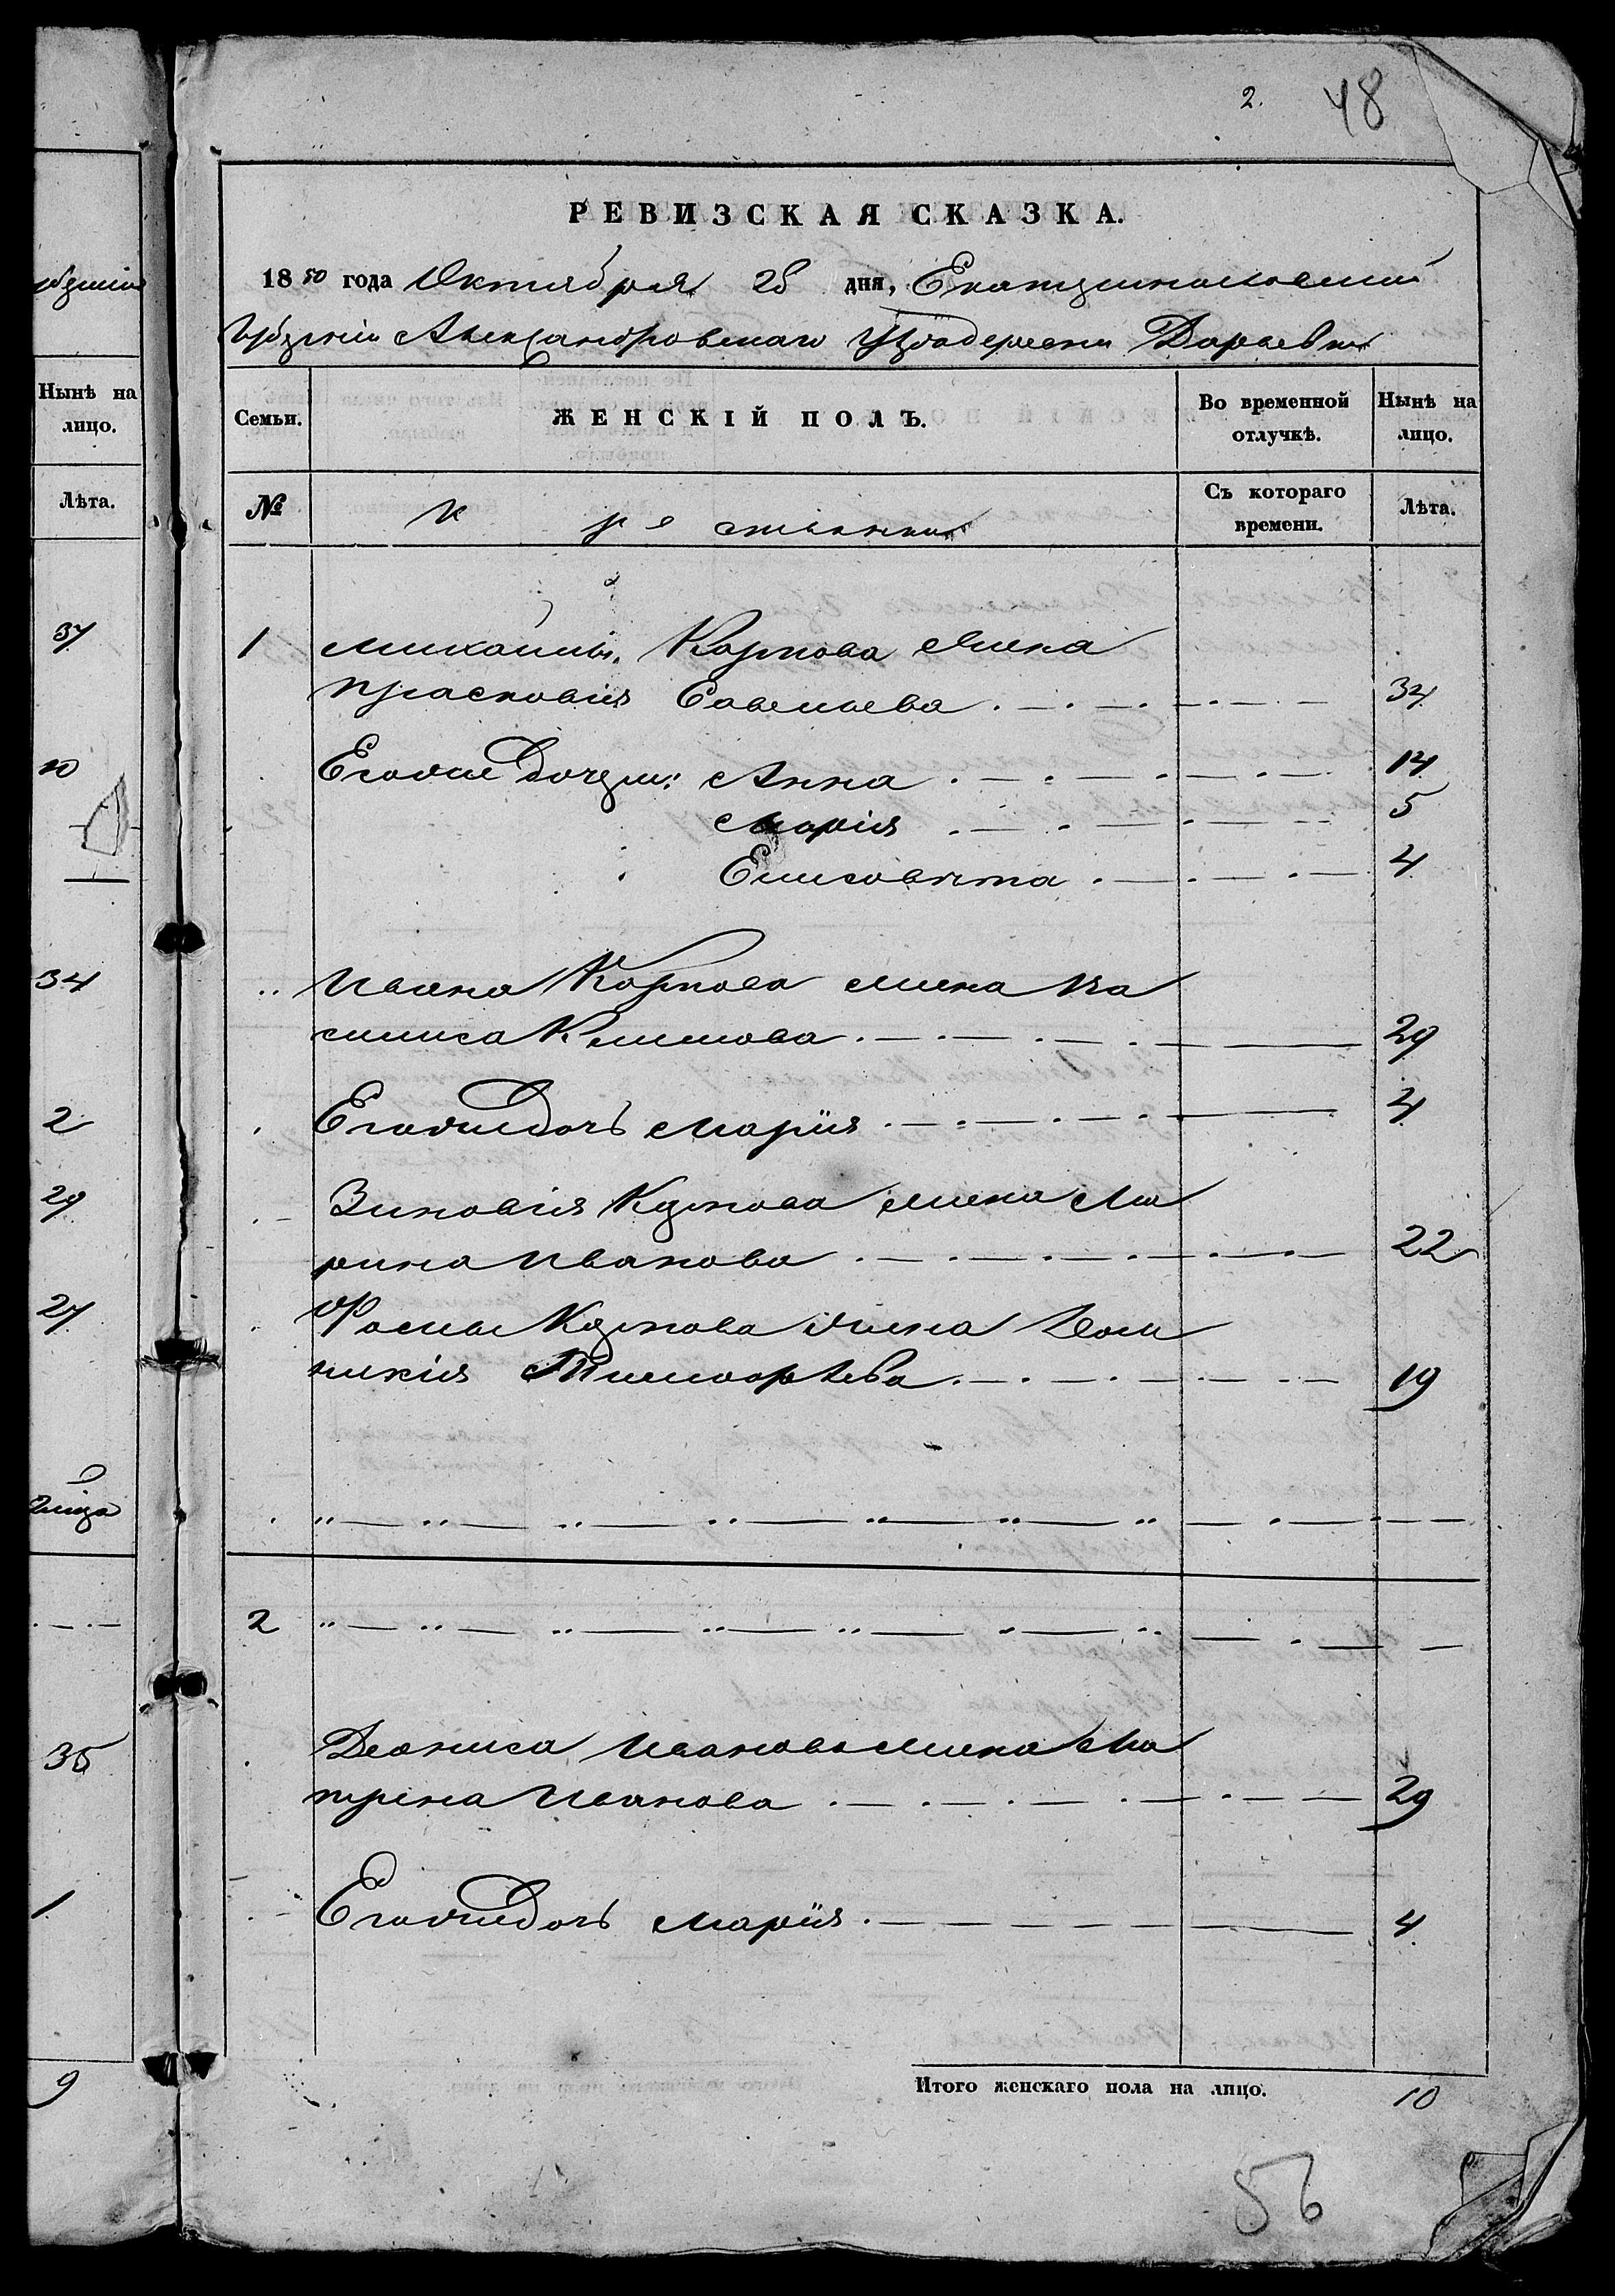 2. 48
РЕВИЗСКАЯ СКАЗКА.
1850 года Октября 28 дня, Екатеринославской
Губерніи Александровскаго Уѣзда деревни Дарьевки
губерніи
Нынѣ на лицо.
Лѣта.
Семьи.
ЖЕНСКІЙ ПОЛЪ.
Во временной отлучкѣ.
Нынѣ на лицо.
№
Крестьянки
Съ котораго времени.
Лѣта.
37
1 Михаилы Карпова жена
Прасковія Савельева 34
10
Его же дочери: Анна 14
Марія 5
Елисавета 4
34
Ивана Карпова жена Ва
силиса Климова 29
2
Его же дочь Марія 4
29
Зиновія Карпова жена Ма
рина Иванова 22
27
Фомы Карпова жена Дом
никія Тимофѣева 19
2
35
Дениса Иванова жена Ма
трена Иванова 29
1
Его же дочь Марія 4
9
Итого женскаго пола на лицо. 10
56